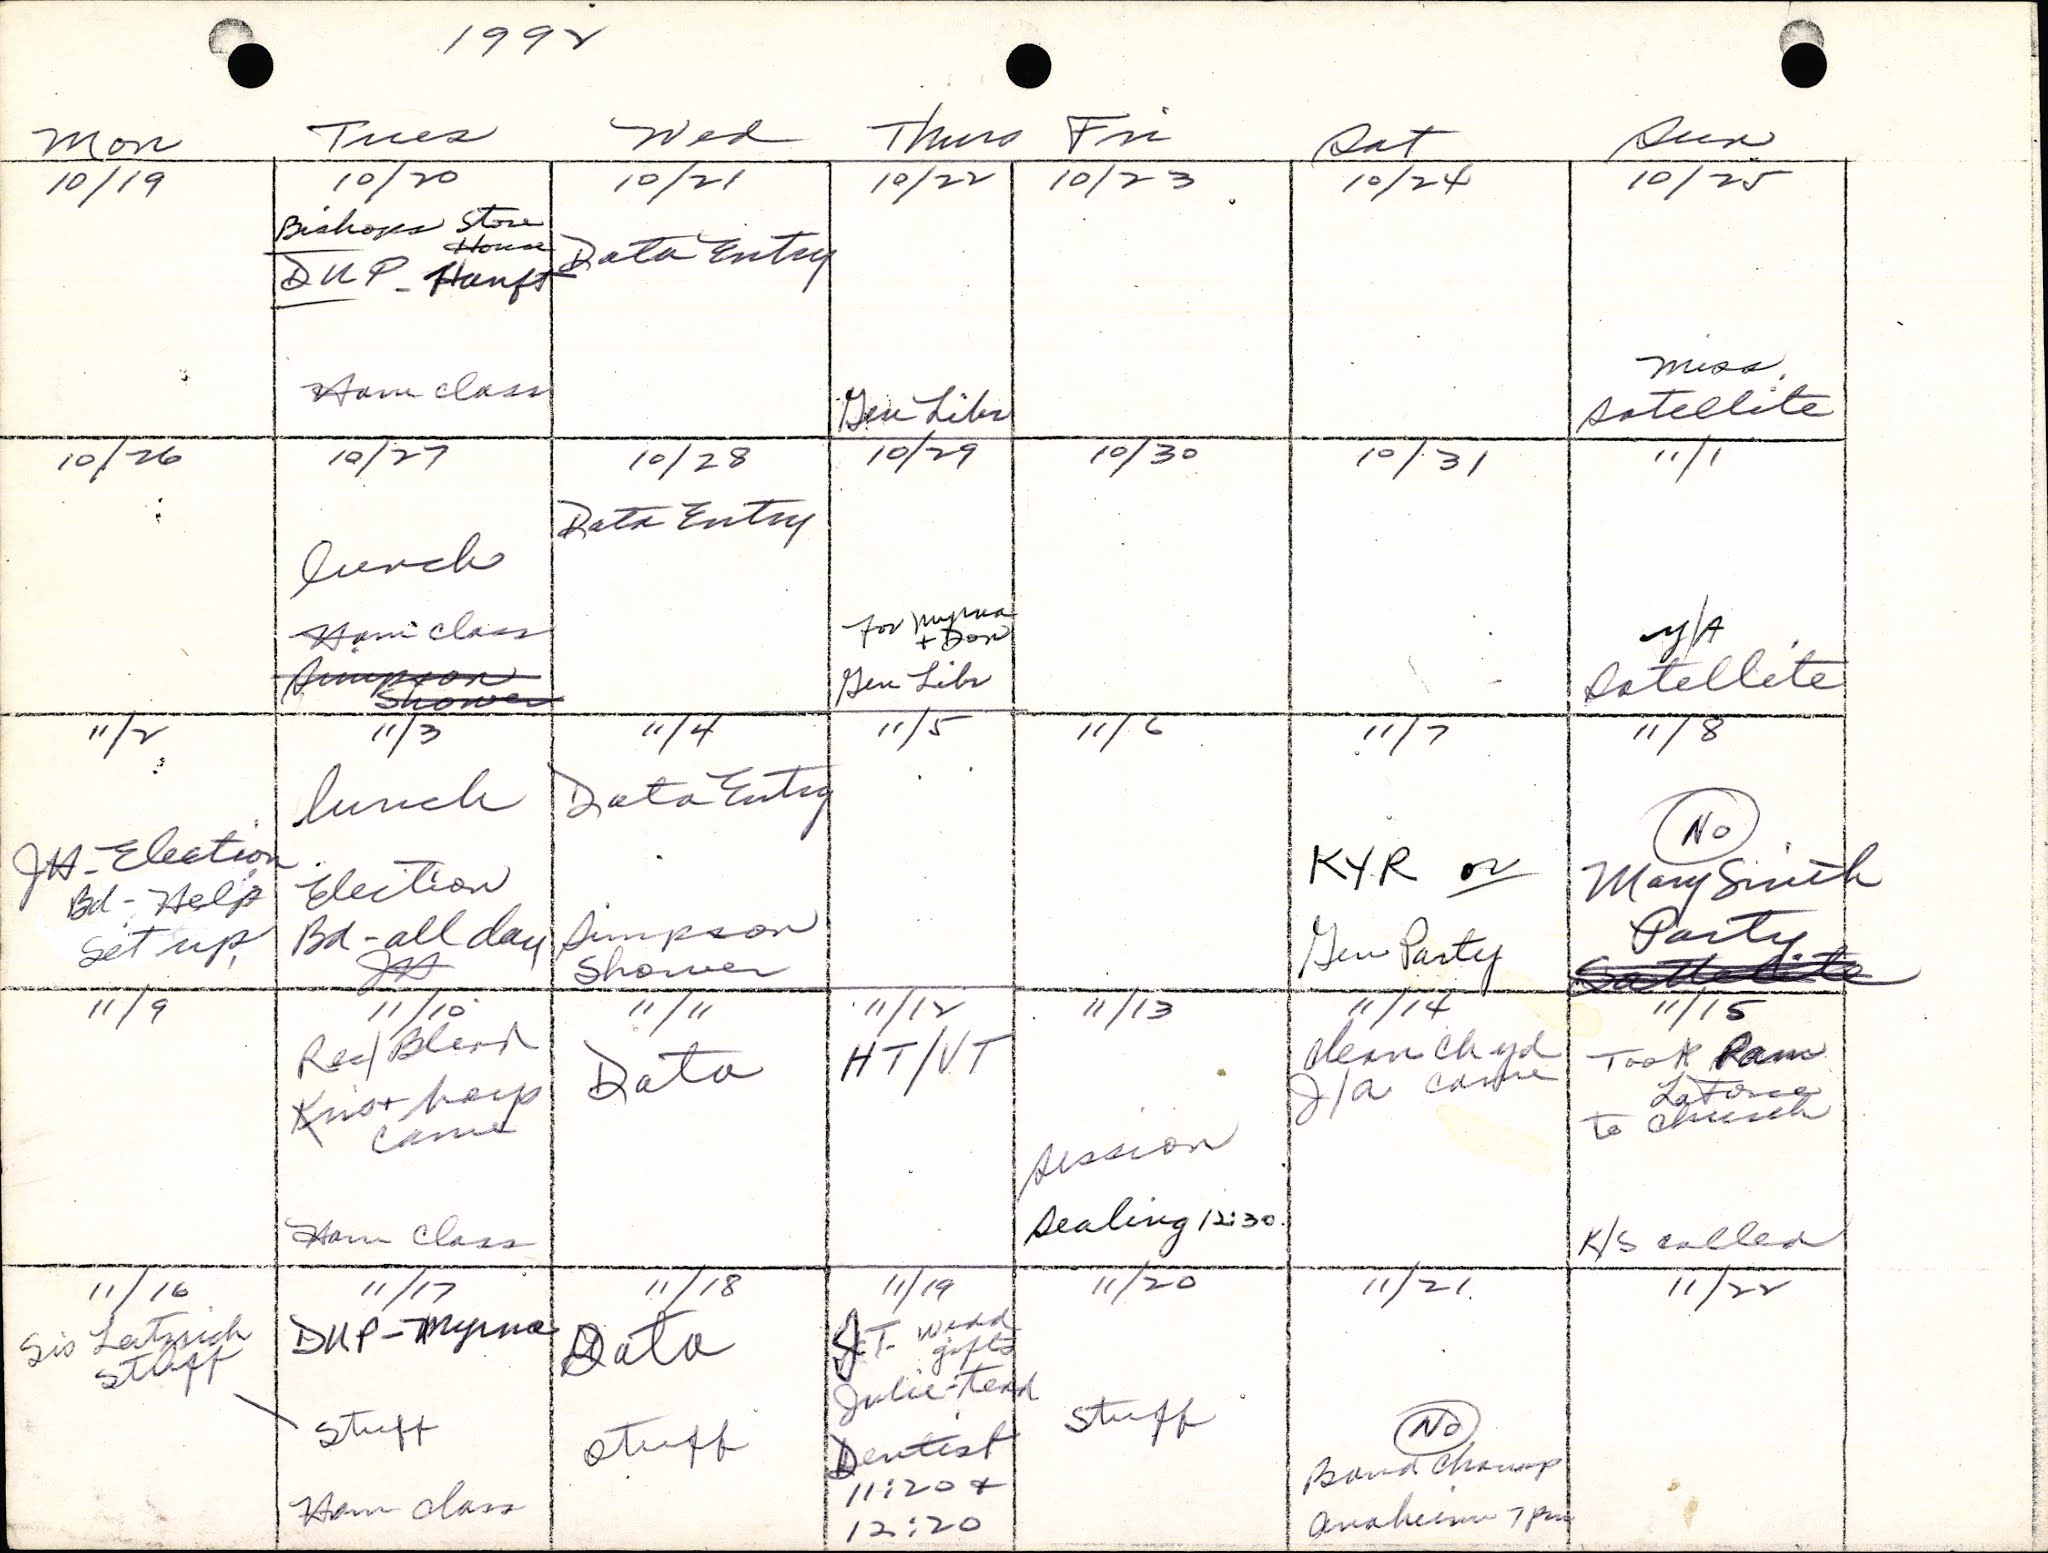 1992
Mon Tues Wed Thurs Fri Sat Sun
10/19 10/20 10/21 10/22 10/23 10/24 10/25
Bishops Store
House
DUP - Hanft
Data Entry
Ham class
Gen Libr
Miss.
Satellite
10/26 10/27 10/28 10/29 10/30 10/31 11/1
lunch
Ham class
Simpson
Shower
Data Entry
For Myrna
+ Don
Gen Libr
Y/A
Satellite
11/2 11/3 11/4 11/5 11/6 11/7 11/8
JH - Election
Bd - Help
Set up.
lunch
Election
Bd - all day
JH
Data Entry
Simpson
Shower
KYR or
Gen Party
No
Mary Smith
Party
Satellite
11/9 11/10 11/11 11/12 11/13 11/14 11/15
Red Blend
Knot harp
came
Ham class
Data
HT/VT
Session
Sealing 12:30
clean ch yd
J/A came
Took Pam
LaForce
to church
K/S called
11/16 11/17 11/18 11/19 11/20 11/21 11/22
Sis
Stuff
DUP - Myrna
Stuff
Ham class
Data
Stuff
JT - Wedd
gifts
Julie - Tend
Dentist
11:20 +
12:20
Stuff
No
Band Champ
Anaheim 7 pm